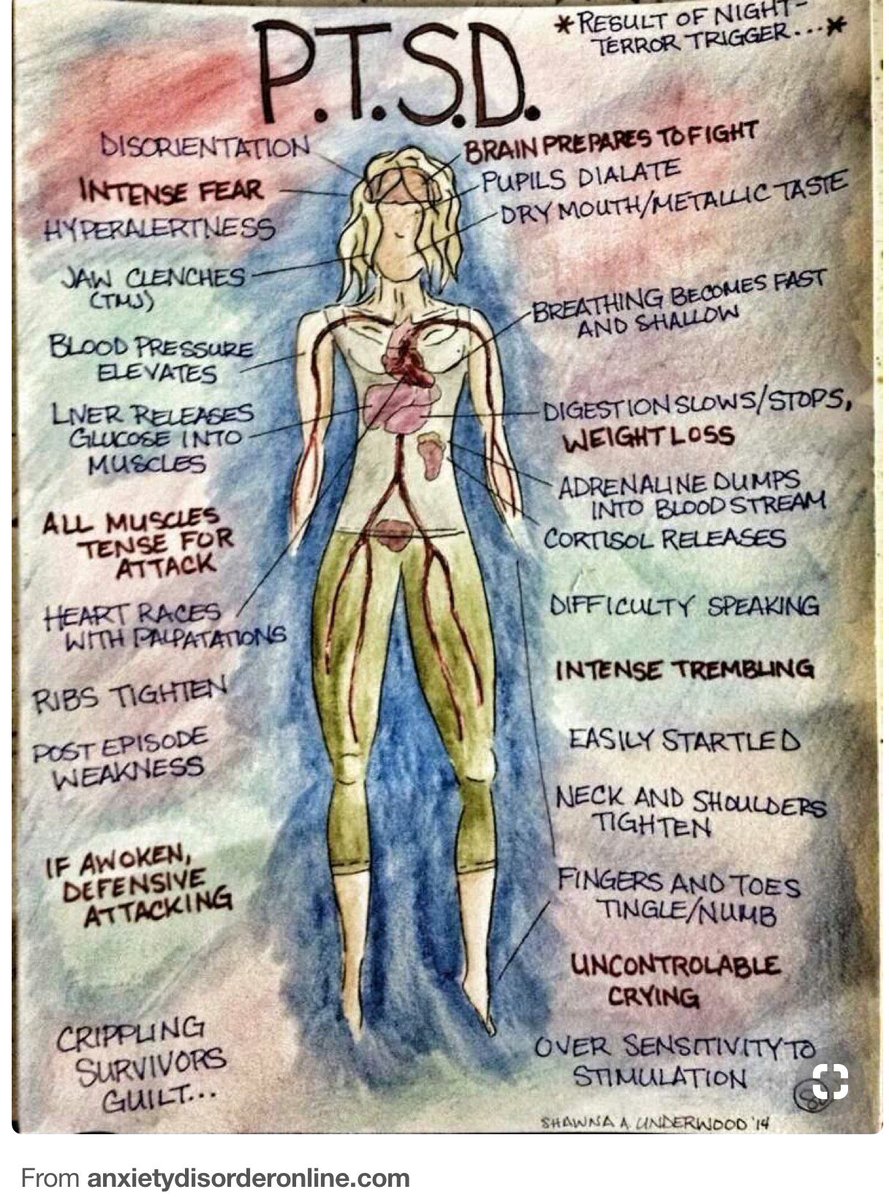 P.T.S.D.
*RESULT OF NIGHT-
TERROR TRIGGER...*
DISORIENTATION
INTENSE FEAR
HYPERALERTNESS
JAW CLENCHES
(TMJ)
BLOOD PRESSURE
ELEVATES
LIVER RELEASES
GLUCOSE INTO
MUSCLES
ALL MUSCLES
TENSE FOR
ATTACK
HEART RACES
WITH PALPATATIONS
RIBS TIGHTEN
POST EPISODE
WEAKNESS
IF AWOKEN,
DEFENSIVE
ATTACKING
CRIPPLING
SURVIVORS
GUILT...
BRAIN PREPARES TO FIGHT
PUPILS DIALATE
DRY MOUTH/METALLIC TASTE
BREATHING BECOMES FAST
AND SHALLOW
DIGESTION SLOWS/STOPS,
WEIGHT LOSS
ADRENALINE DUMPS
INTO BLOOD STREAM
CORTISOL RELEASES
DIFFICULTY SPEAKING
INTENSE TREMBLING
EASILY STARTLED
NECK AND SHOULDERS
TIGHTEN
FINGERS AND TOES
TINGLE/NUMB
UNCONTROLABLE
CRYING
OVER SENSITIVITY TO
STIMULATION
SHAWNA A. UNDERWOOD '14
From anxietydisorderonline.com